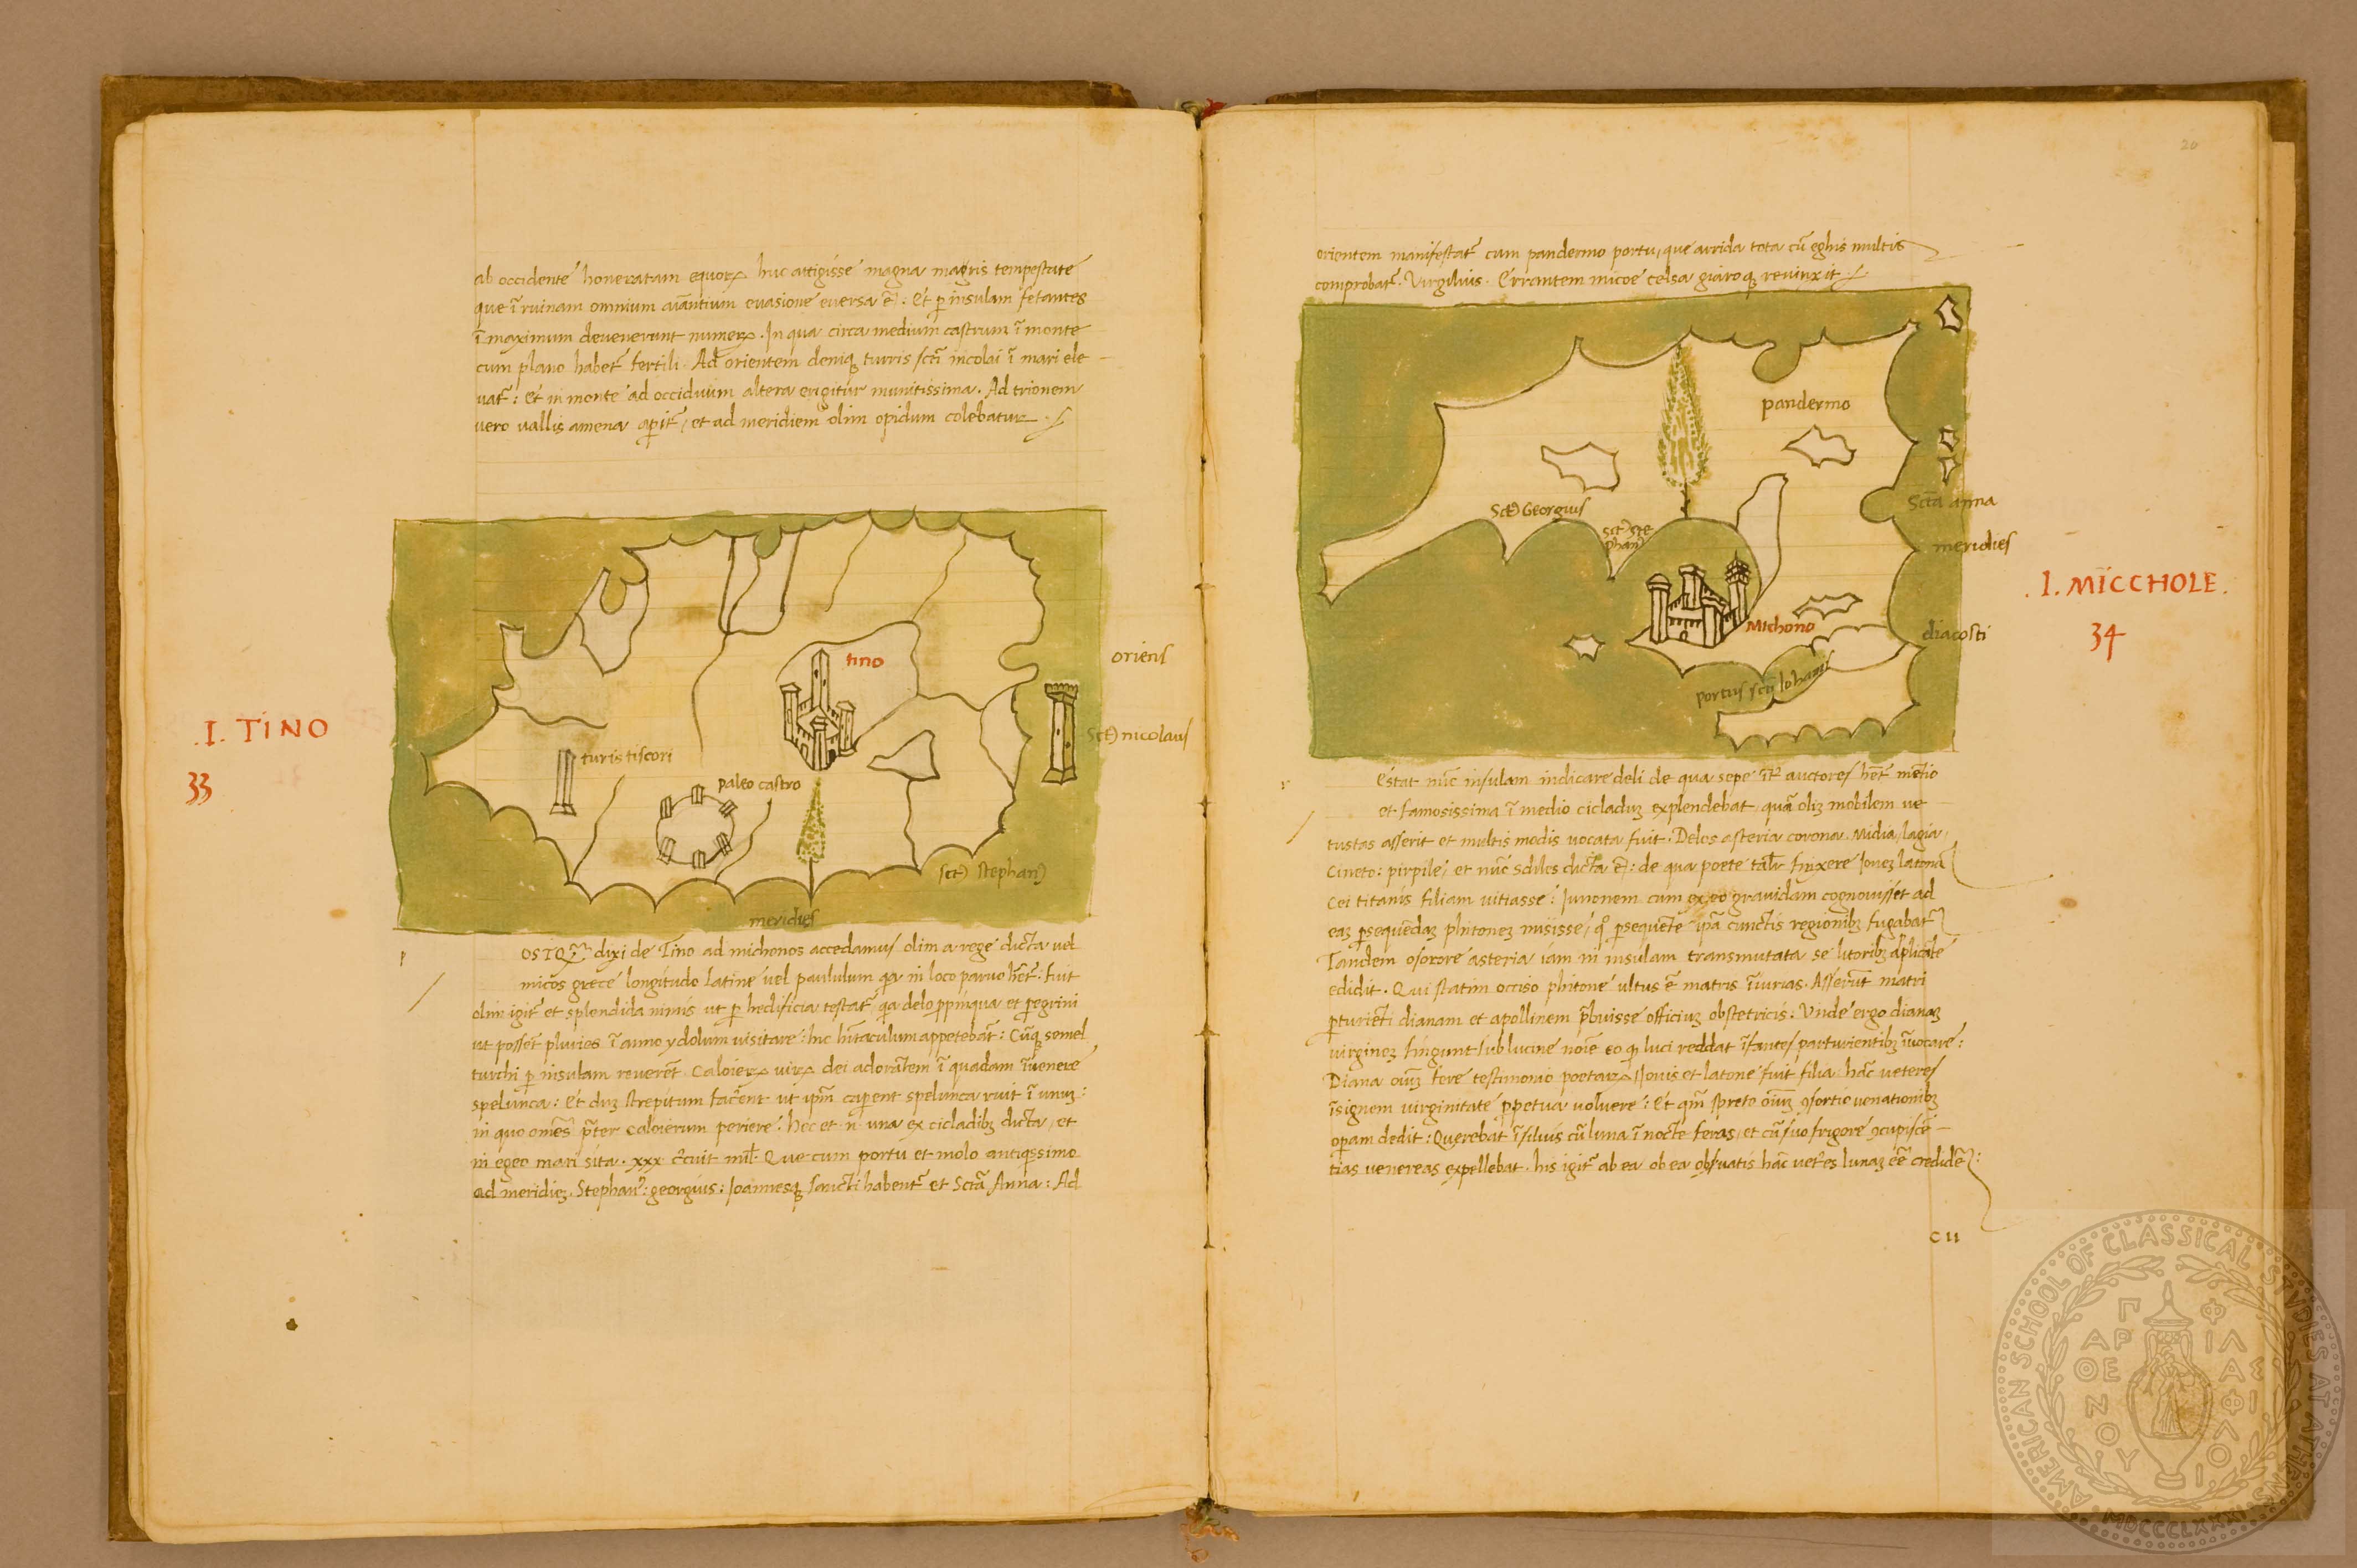 ab occidente honeratam equoꝝ huc attigisse magna magris tempestate
que ĩ ruinam omnium aĩantium euasione euersa ẽ: Et ꝑ insulam fetantes
ĩ maximum deuenerunt numeꝝ. In qua circa medium castrum ĩ monte
cum plano habet᷑ fertili. Ad orientem deniqꝫ turris scti nicolai ĩ mari ele
uat᷑: Et in monte ad occiduum altera erigitur munitissima. Ad trionem
uero uallis amena aꝑit᷑, et ad meridiem olim opidum colebatur
tino
oriens
Sct nicolaus
.I. TINO
33
turis tiscori
paleo castro
sct stephan
meridies
p
OSTQ dixi de Tino ad michonos accedamus olim a rege dicta uel
micos grece longitudo latine uel paululum qa in loco paruo het: fuit
olim igit᷑ et splendida nimis ut ꝑ hedificia testat᷑ qa delo ppinqua et ꝑegrini
ut possẽt pluries ĩ anno ydolum uisitare: huc hĩtaculum appetebãt: Cũqꝫ semel
turchi ꝑ insulam reuerẽt Caloieꝝ uiꝝ dei adorãtem ĩ quadam ĩuenere
spelunca: Et duꝫ strepitum facẽnt ut ipm caperent spelunca ruit ĩ unuꝫ:
in quo omẽs pter caloierum periere. hec et n una ex cicladibꝫ dicta, et
in egeo mari sita. xxx circuit mil. Que cum portu et molo antiquissimo
ad meridieꝫ. Stephan: georgius: Joannesqꝫ sancti habent᷑ et Sctã Anna: Ad
20
orientem manifestat᷑ cum pandermo portu, que arrida tota cũ eghis multis
comprobat᷑. Virgilius. Errantem micoe celsa giaroqꝫ reuinxit
pandermo
Sct Georgius
sct ste
phan
Sctã anna
meridies
.I. MICCHOLE.
34
Michono
diacosti
portus scti Iohanis
r
Estat nũc insulam indicare deli de qua sepe auctores hẽt mẽtio
et famosissima ĩ medio cicladuꝫ explendebat, quã oliꝫ mobilem ue
tustas asserit et multis modis uocata fuit. Delos asteria corona. Midia, lagia,
Cineto: pirpile, et nũc Sdiles dicta ẽ: de qua poete tal finxere Joueꝫ latonã
Cei titanis filiam uitiasse: Junonem cum ex eo grauidam cognouisset ad
eaꝫ ꝑsequẽdaꝫ phitoneꝫ misisse, q ꝑsequẽte ipã cunctis regionibꝫ fugabat᷑
Tandem osorore asteria iam in insulam transmutata se litoribꝫ aplicãte
edidit. Qui statim occiso phitone ultus ẽ matris ĩiurias. Asserũt matri
ꝑturiẽti dianam et apollinem pbuisse officiuꝫ obstetricis: Vnde ergo dianaꝫ
uirgineꝫ fingunt sub lucine noĩe eo qp luci reddat ĩfantes parturientibꝫ ĩuocare:
Diana oĩuꝫ fere testimonio poetaꝝ Jouis et latone fuit filia. hãc ueteres
ĩsignem uirginitate perpetua uoluere: Et qm spreto oĩuꝫ ꝯsortio uenationibꝫ
opam dedit: Querebat ĩ siluis cũ luna ĩ nocte feras, et cũ suo frigore ꝯcupiscẽ
tias uenereas expellebat. his igit᷑ ab ea ob ea obseruatis hãc uetres lunaꝫ eẽ credidẽ:
c 11
AMERICAN SCHOOL OF CLASSICAL STUDIES AT ATHENS
MDCCCLXXXI
ΠΑΡΘΕΝΟΥ
ΦΙΛΑΣ ΦΙΛΟΙ